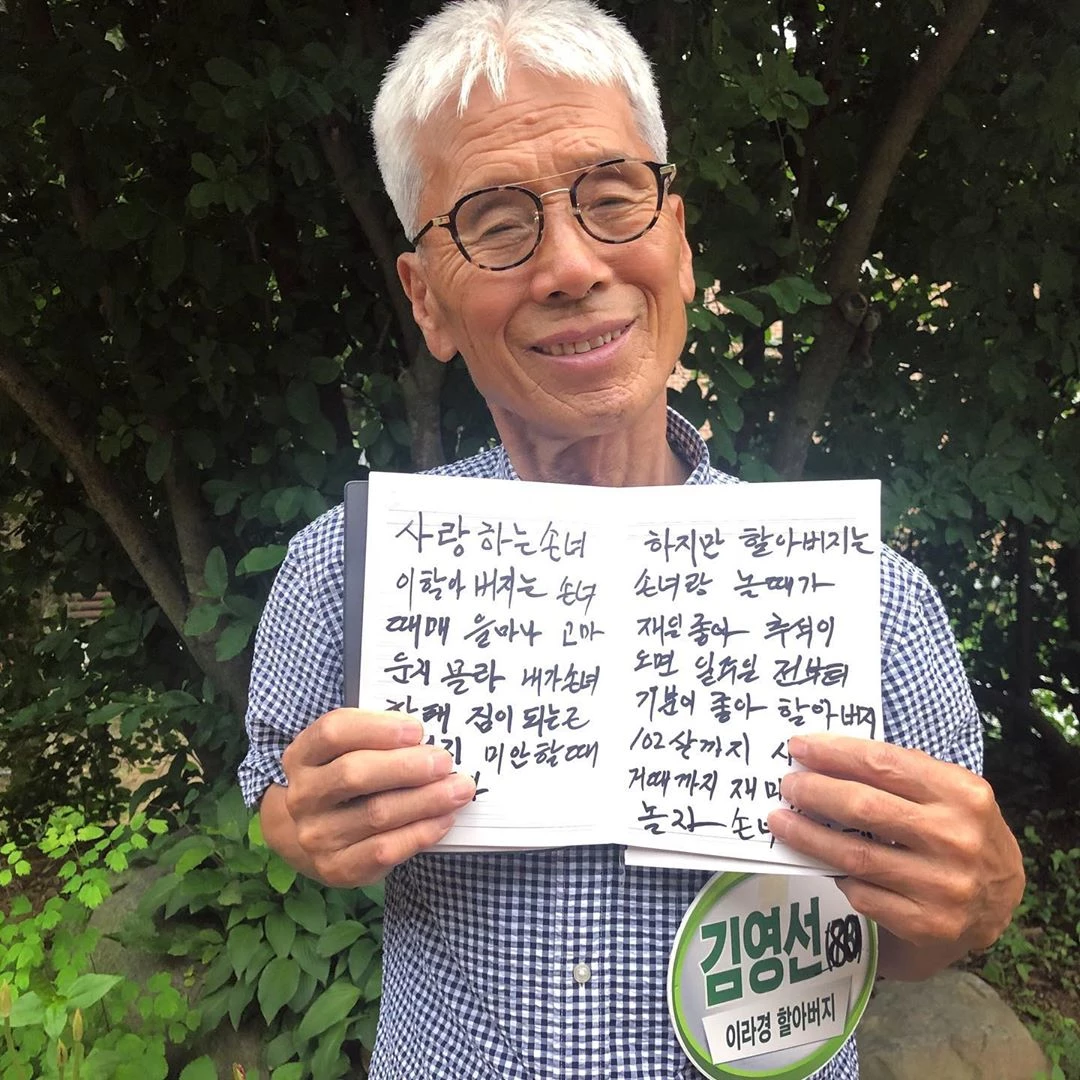 사랑하는손녀
이할아버지는 손녀
때매 을마나 고마
운지 몰라 내가손녀
짐이 되는근
미안할때
하지만 할아버지는
손녀랑 놀때가
재일 좋아 추석이
도면 일주일 전부터
기분이 좋아 할아버지
102살까지
거때까지 재미
놀자 손녀
김영선(80)
이라경 할아버지